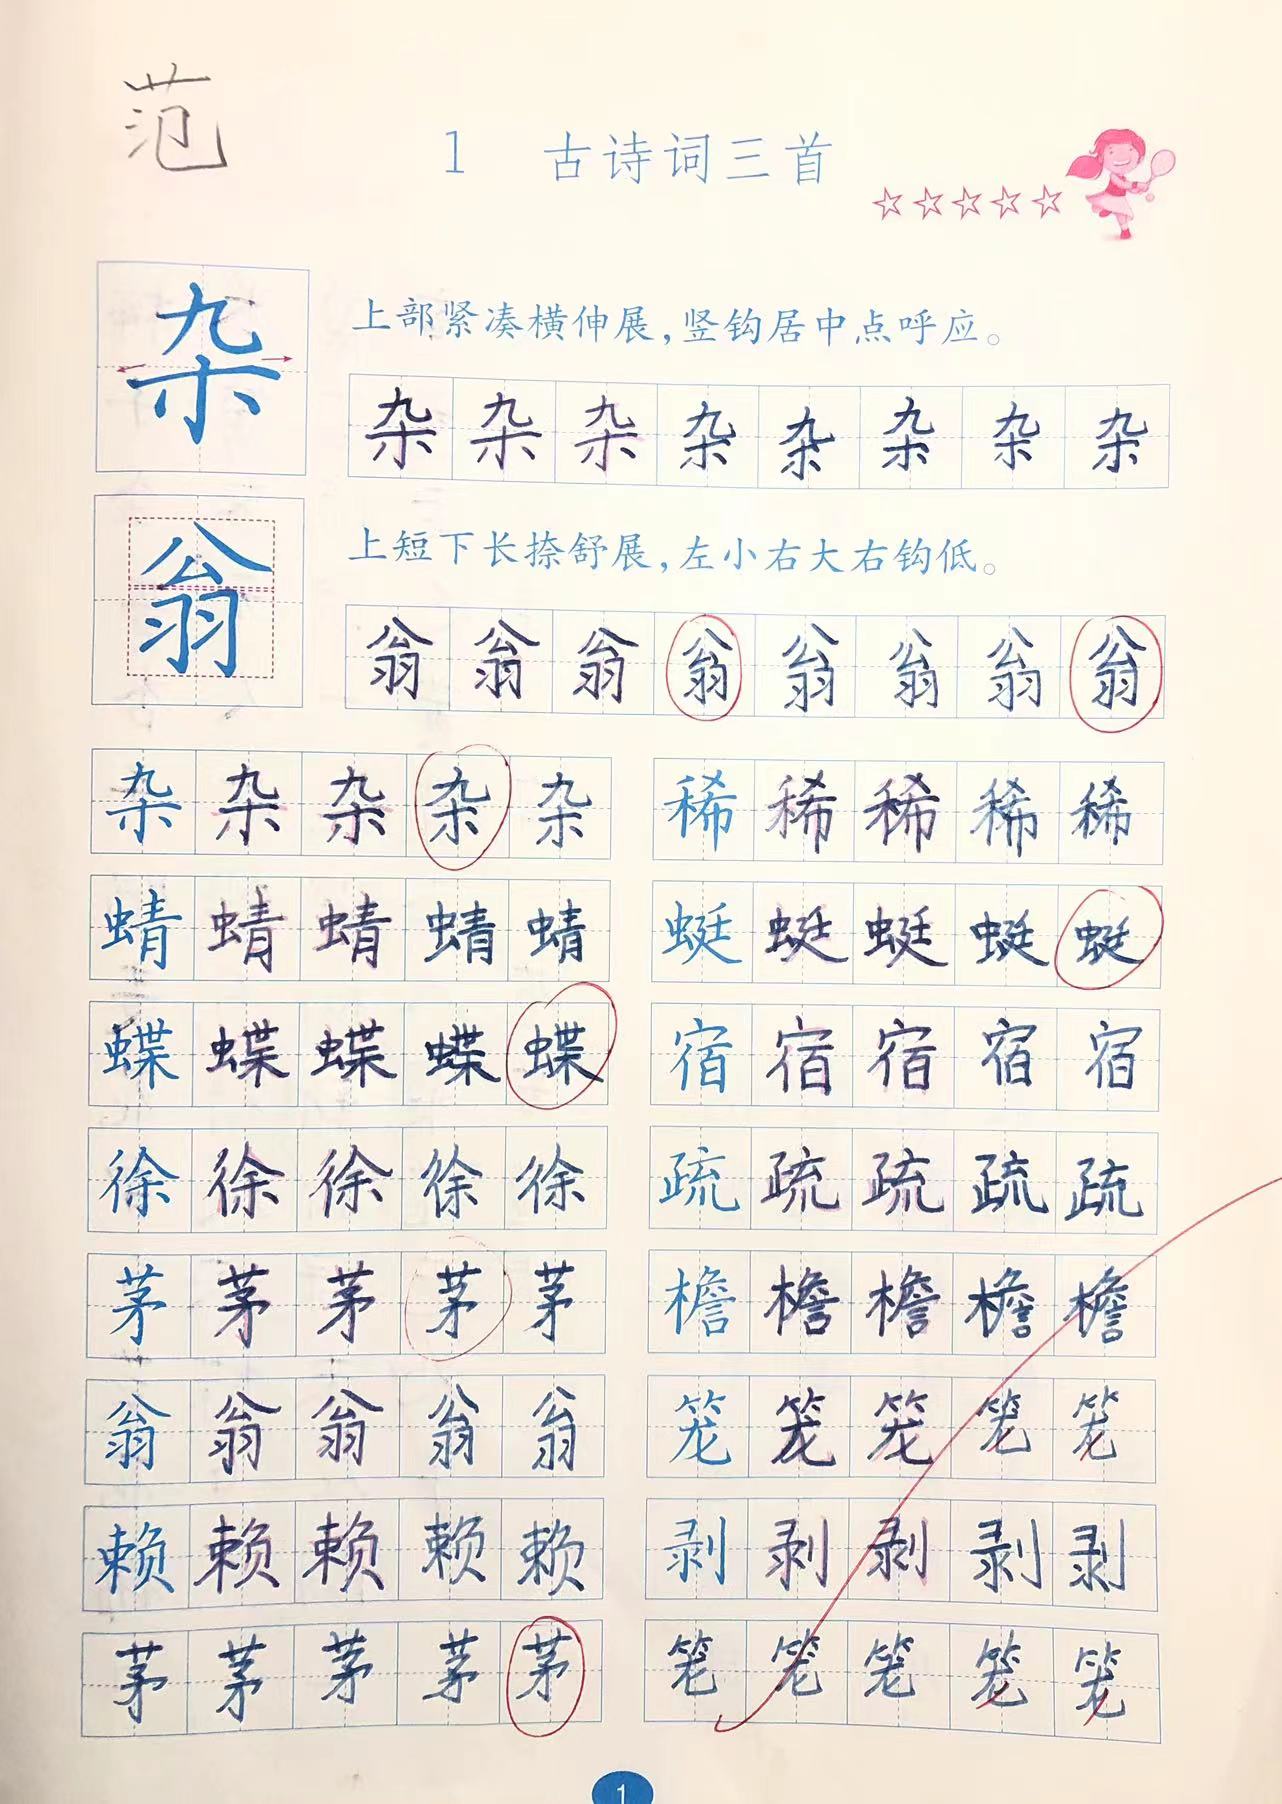 范
1 古诗词三首
杂
上部紧凑横伸展，竖钩居中点呼应。
杂杂杂杂杂杂杂杂
翁
上短下长捺舒展，左小右大右钩低。
翁翁翁翁翁翁翁翁
杂杂杂杂杂 稀稀稀稀稀
蜻蜻蜻蜻蜻 蜓蜓蜓蜓蜓
蝶蝶蝶蝶蝶 宿宿宿宿宿
徐徐徐徐徐 疏疏疏疏疏
茅茅茅茅茅 檐檐檐檐檐
翁翁翁翁翁 笼笼笼笼笼
赖赖赖赖赖 剥剥剥剥剥
茅茅茅茅茅 笼笼笼笼笼
1